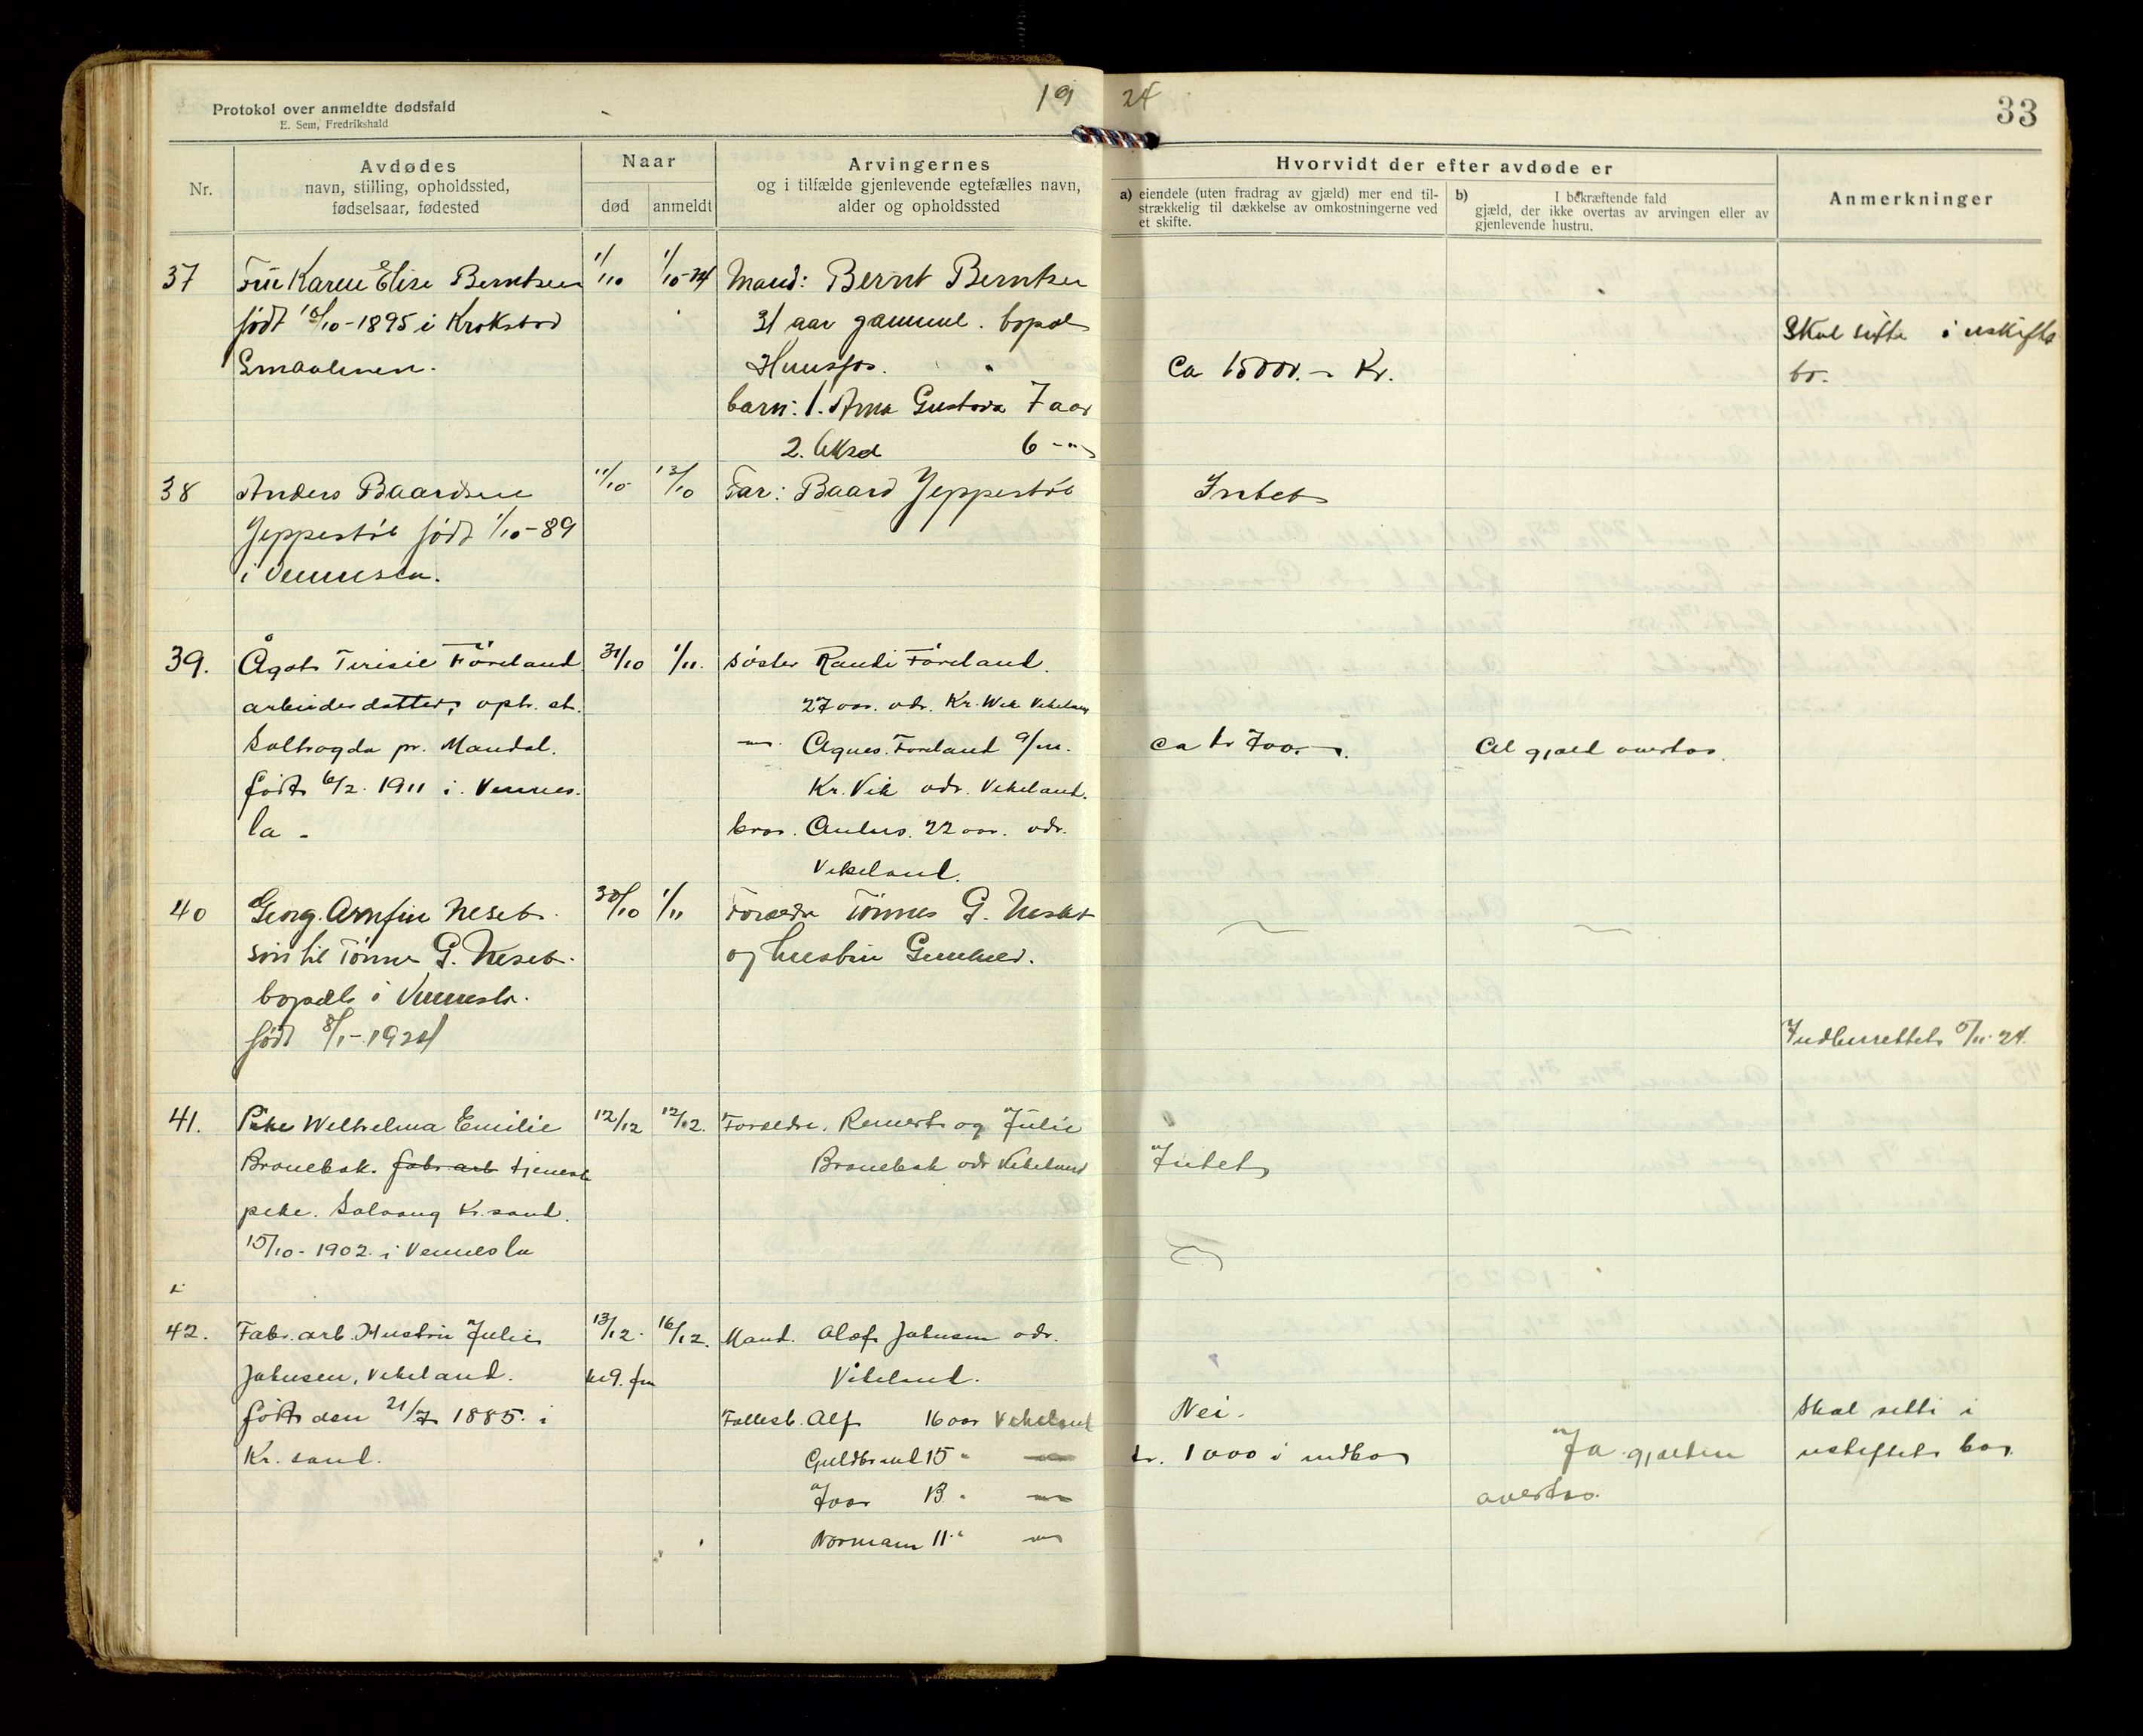 Protokol over anmeldte dødsfald
E. Sem, Fredrikshald
19 24
33
Nr.
Avdødes
navn, stilling, opholdssted,
fødselsaar, fødested
Naar
død
anmeldt
Arvingernes
og i tilfælde gjenlevende egtefælles navn,
alder og opholdssted
Hvorvidt der efter avdøde er
a) eiendele (uten fradrag av gjæld) mer end til-
strækkelig til dækkelse av omkostningerne ved
et skifte.
b) I bekræftende fald
gjæld, der ikke overtas av arvingen eller av
gjenlevende hustru.
Anmerkninger
37 Fru Karen Elise Berntsen 1/10 1/10-24 Mand: Bernt Berntsen
født 18/10-1895 i Krokstad 31 aar gammel. bopæl
Skal sitte i uskifte
Smaalenen. Hunsfos. Ca 15000.- Kr. bo.
barn: 1. Anna Gustava 7 aar
2. Aksel 6 -"-
38 Anders Baardsen 11/10 13/10 Far: Baard Jeppestøl Intet
Jeppestøl født 1/10-89
i Vennesla.
39. Ågot Terisie Föreland 31/10 1/11. søster Randi Föreland.
arbeiderdatter, oph. st. 27 aar. adr. Kr. Vik Vikeland
Solhøgda pr. Mandal. Agnes. Foreland ca kr 700.- Al gjæld overtas.
født 6/2. 1911 i. Vennes- Kr. Vik adr. Vikeland.
la - bror. Anders. 22 aar. adr.
Vikeland.
40 Georg. Arnfin Neset. 30/10 1/11 Foreldre Tönnes G. Neset
søn til Tönnes G. Neset. og hustru Gunhild.
bopæl i Vennesla.
født 8/1-1924
Indberettet 5/11-24.
41. Pike Welhelma Emilie 12/12 12/12. Foreldre. Reinert og Julie
Bronebak. fabr. arb tjeneste Bronebak adr Vikeland Intet
pike. Solvang Kr. sand.
15/10-1902. i Vennesla
42. Fabr. arb. Hustru Julie 13/12. 16/12. Mand. Olaf Johnsen adr.
Johnsen, Vikeland. kl 9. fm Vikeland.
født den 21/7 1885. i Fellesb. Alf 16 aar Vikeland Nei. Skal sitte i
Kr. sand. Guldbrand 15 " kr. 1000 i indbo Ja gjælden uskiftet bo.
Ivar 13. " overtas.
Normann 11 "